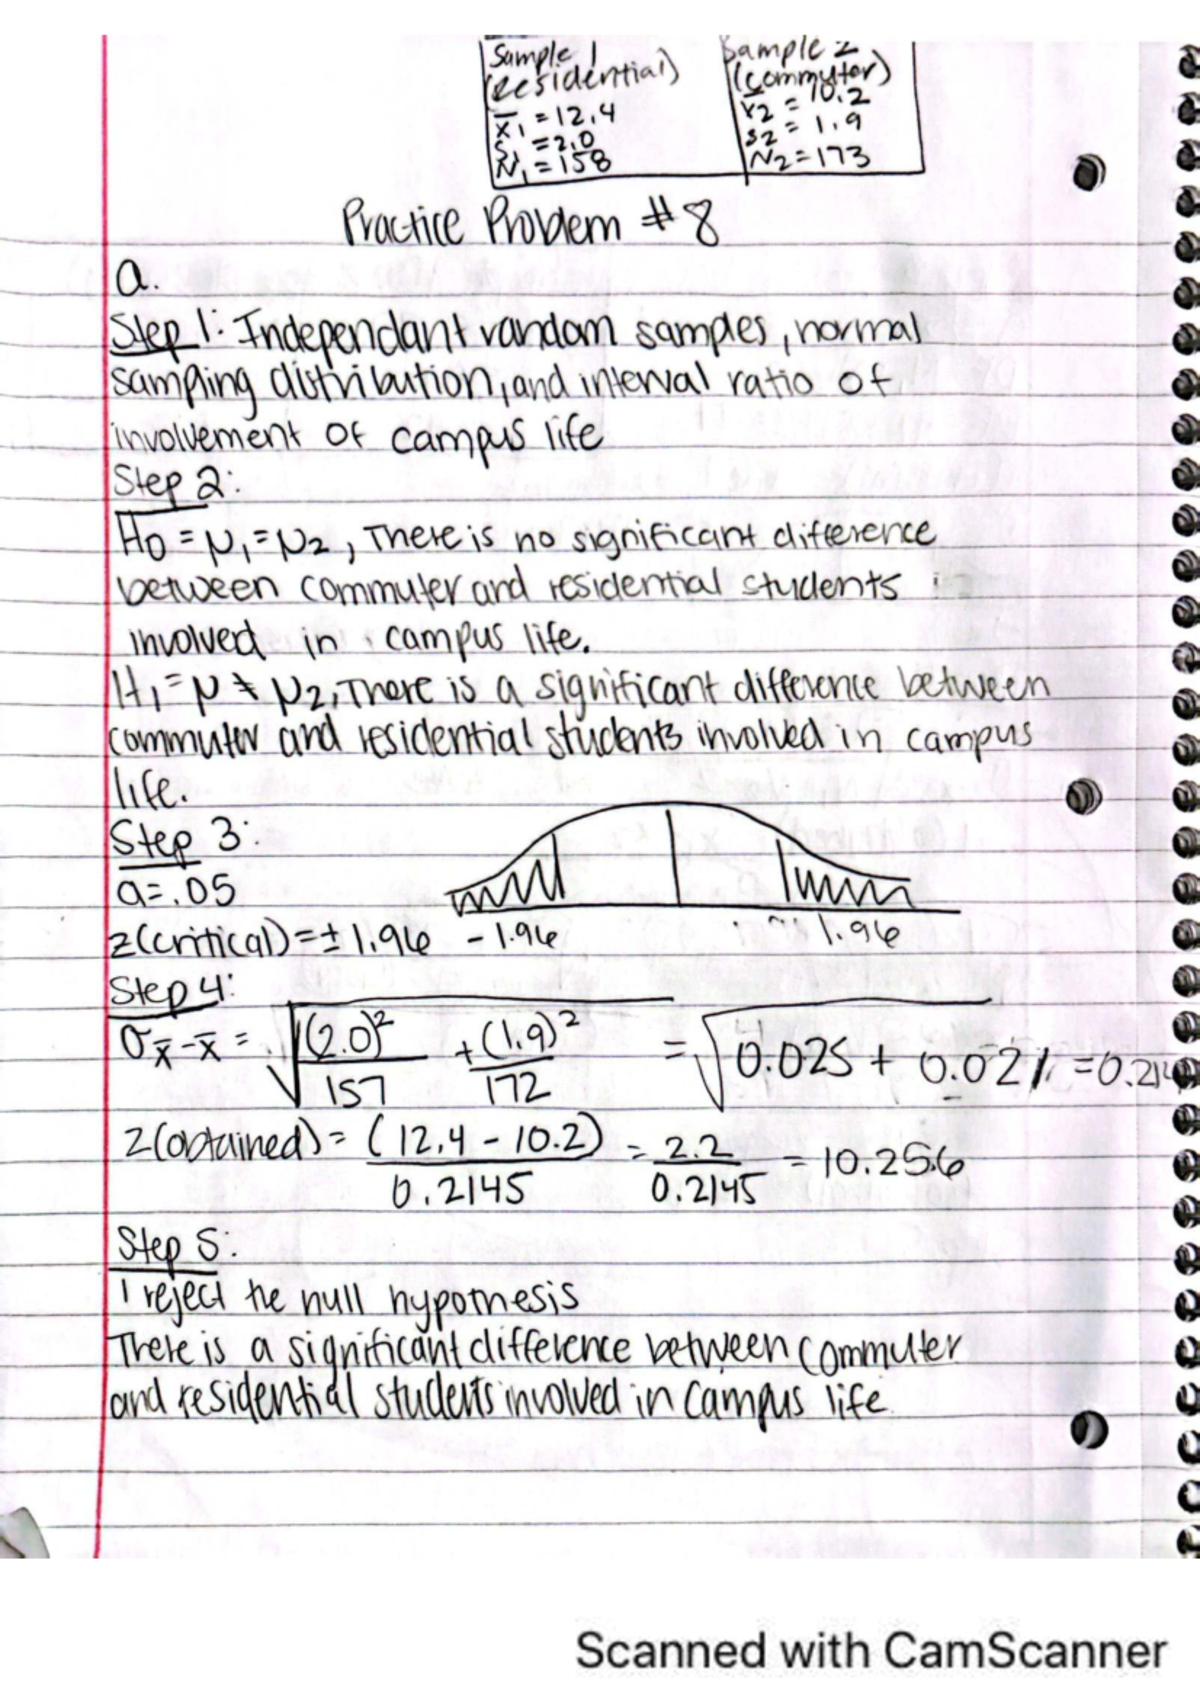 Sample 1
(residential)
x̄₁ = 12.4
S₁ = 2.0
N₁ = 158
Sample 2
(commuter)
x̄2 = 10.2
S2 = 1.9
N2 = 173
Practice Problem #8
a.
Step 1: Independant random samples, normal
sampling distribution, and interval ratio of
involvement of campus life
Step 2:
H0 = μ₁ = μ2, There is no significant difference
between commuter and residential students
involved in campus life.
H₁ = μ ≠ μ2, There is a significant difference between
commuter and residential students involved in campus
life.
Step 3:
a = .05
z(critical) = ± 1.96 - 1.96 1.96
Step 4:
σx̄-x̄ = √(2.0)²/157 + (1.9)²/172 = √0.025 + 0.021 = 0.214
Z(obtained) = (12.4 - 10.2)/0.2145 = 2.2/0.2145 = 10.256
Step 5:
I reject the null hypothesis
There is a significant difference between commuter
and residential students involved in campus life.
Scanned with CamScanner